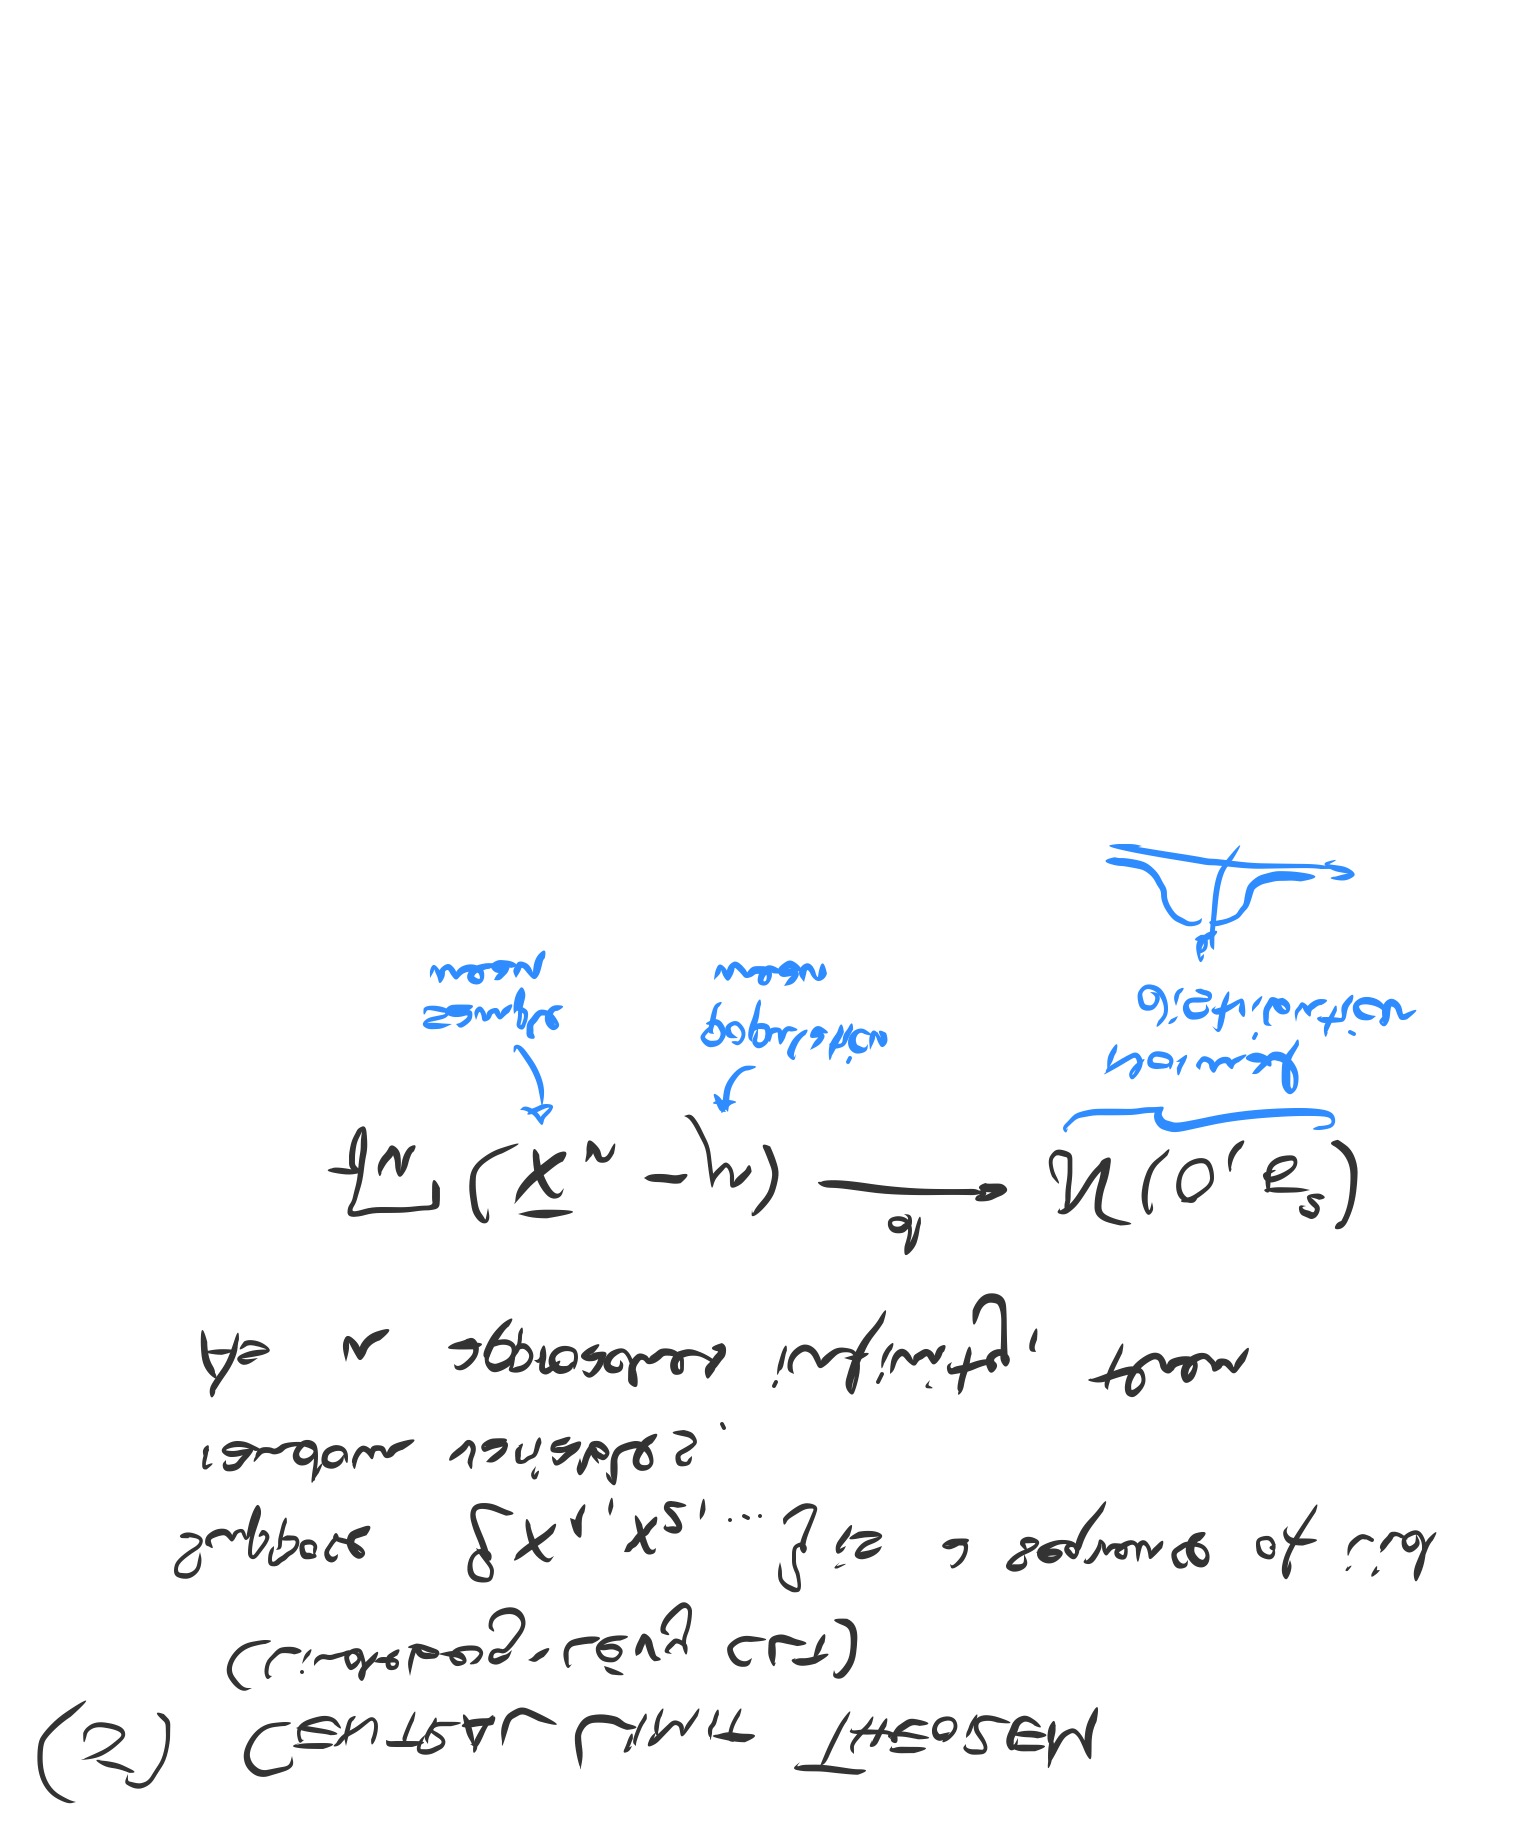 (5) CENTRAL LIMIT THEOREM
(Lindeberg-Lévy CLT)
Suppose {X₁, X₂, ...} is a sequence of iid
random variables.
As n approaches infinity, then
√n (X̄ₙ - μ) →ᵈ N(0, σ²)
sample mean
population mean
Normal distribution